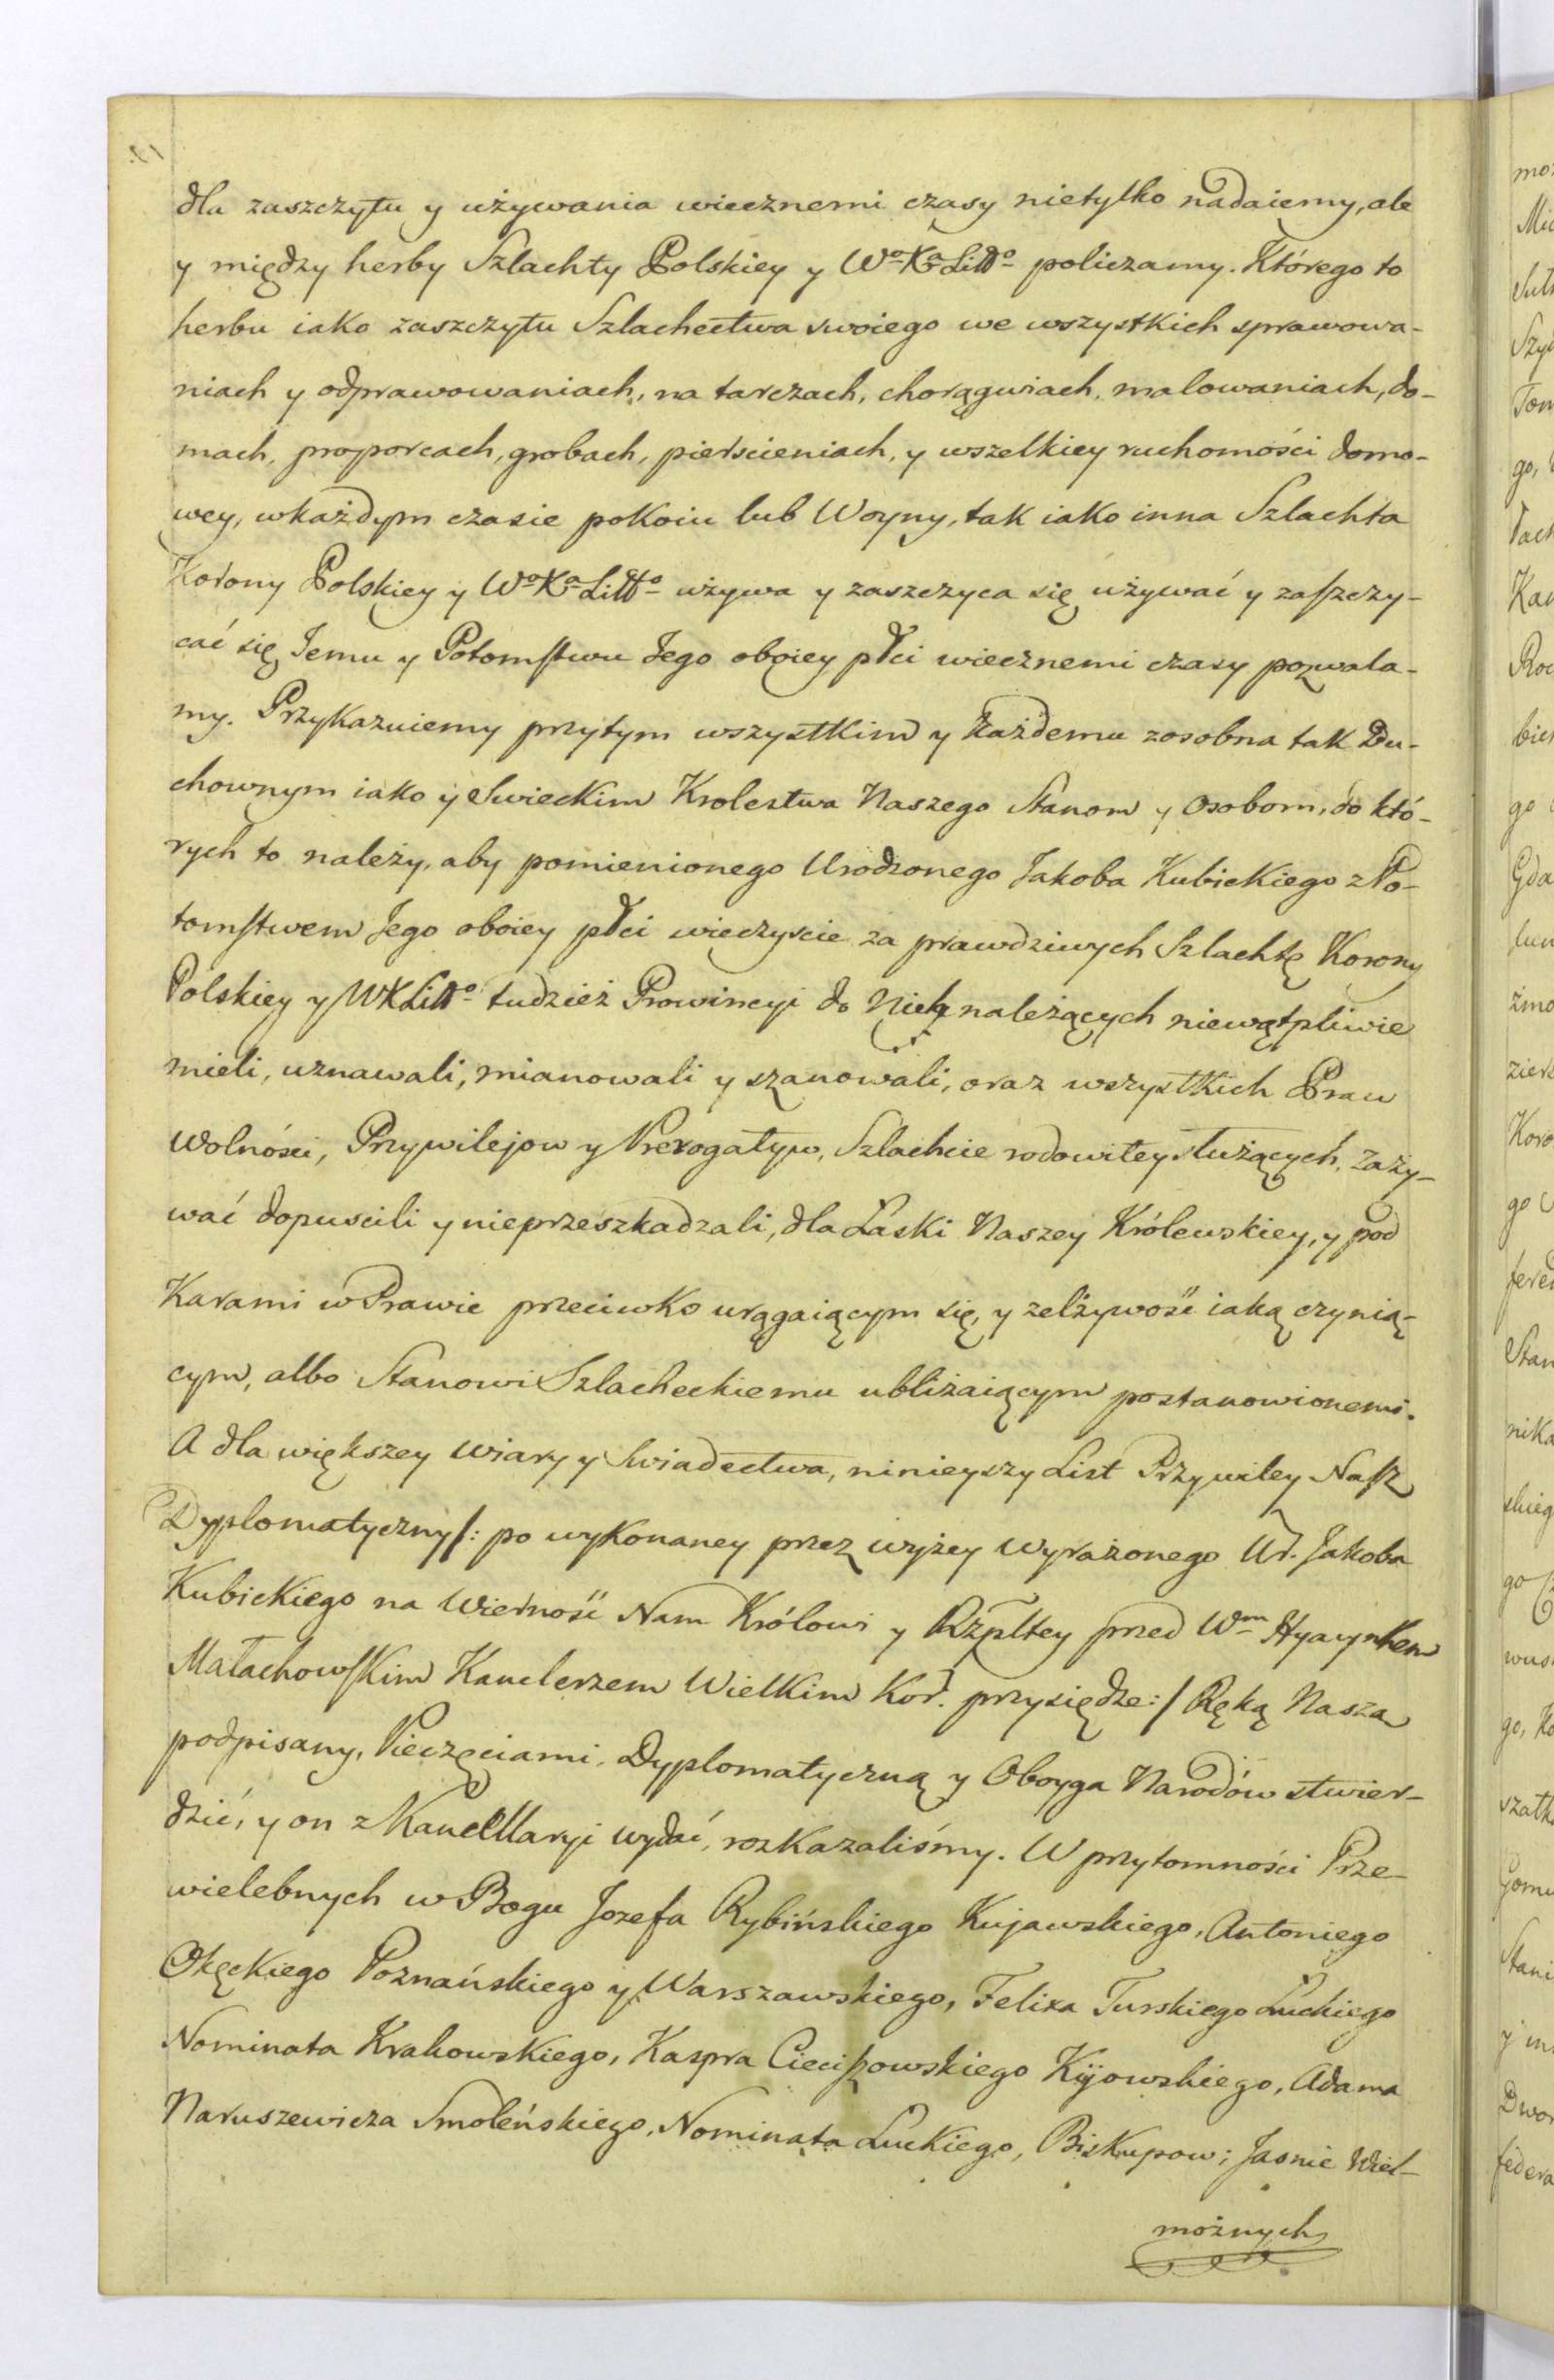 dla zaszczytu y używania wiecznemi czasy nietylko nadaiemy, ale
y między herby Szlachty Polskiey y Wo Ka Litto policzamy. Którego to
herbu iako zaszczytu Szlachectwa swoiego we wszystkich sprawowa-
niach y odprawowaniach, na tarczach, chorągwiach, malowaniach, do-
mach, proporcach, grobach, pierscieniach, y wszelkiey ruchomości domo-
wey, wkażdym czasie pokoiu lub Woyny, tak iako inna Szlachta
Korony Polskiey y Wo Ka Litto używa y zaszczyca się używać y zaszczy-
cać się Jemu y Potomstwu Jego oboiey płci wiecznemi czasy pozwala-
my. Przykazuiemy przytym wszystkim y każdemu zosobna tak Du-
chownym iako y Swieckim Krolestwa Naszego Stanom y Osobom, do któ-
rych to należy, aby pomienionego Urodzonego Jakoba Kubickiego z Po-
tomstwem Jego oboiey płci wieczyscie za prawdziwych Szlachtę Korony
Polskiey y WK Litto tudzież Prowincyi do Nich należących niewątpliwie
mieli, uznawali, mianowali y szanowali, oraz wszystkich Praw
Wolności, Przywilejow y Prerogatyw, Szlachcie rodowitey służących, zaży-
wać dopuscili y nieprzeszkadzali, dla Łaski Naszey Królewskiey, y pod
Karami w Prawie przeciwko urągaiącym się, y zelżywość iaką czynią-
cym, albo Stanowi Szlacheckiemu ubliżaiącym postanowionemi.
A dla większey Wiary y Swiadectwa, ninieyszy List Przywiley Nasz
Dyplomatyczny/: po wykonaney przez wyżey Wyrażonego Ur. Jakoba
Kubickiego na Wierność Nam Królowi y Rzpltey przed Wm Hyacyntem
Małachowskim Kanclerzem Wielkim Kor. przysiędze:/ Ręką Naszą
podpisany, Pieczęciami, Dyplomatyczną y Oboyga Narodów stwier-
dzić, y on z Kancellaryi wydać, rozkazaliśmy. W przytomności Prze-
wielebnych w Bogu Jozefa Rybińskiego Kujawskiego, Antoniego
Okęckiego Poznańskiego y Warszawskiego, Felixa Turskiego Łuckiego
Nominata Krakowskiego, Kaspra Cieciszowskiego Kijowskiego, Adama
Naruszewicza Smoleńskiego, Nominata Łuckiego, Biskupow; Jasnie Wiel-
możnych